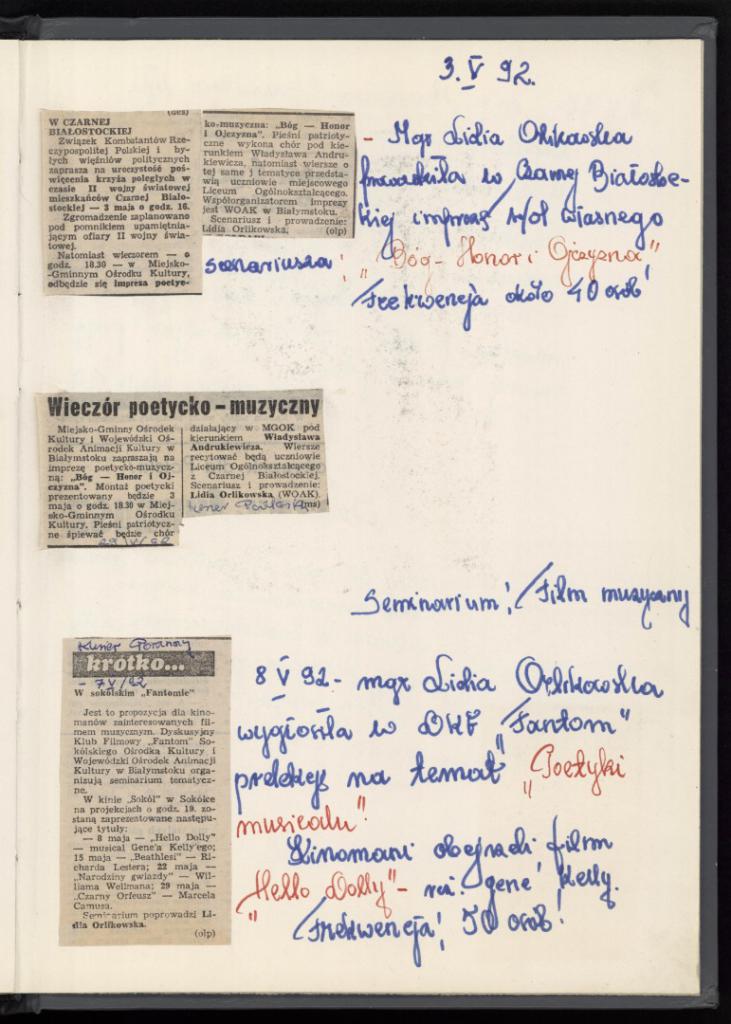 3. V 92.
(Ges)
W CZARNEJ
BIAŁOSTOCKIEJ
Związek Kombatantów Rze-
czypospolitej Polskiej i by-
łych więźniów politycznych
zaprasza na uroczystość poś-
więcenia krzyża poległych w
czasie II wojny światowej
mieszkańców Czarnej Biało-
stockiej — 3 maja o godz. 16.
Zgromadzenie zaplanowano
pod pomnikiem upamiętnia-
jącym ofiary II wojny świa-
towej.
Natomiast wieczorem — o
godz. 18.30 — w Miejsko-
-Gminnym Ośrodku Kultury,
odbędzie się impreza poetyc-
ko-muzyczna: „Bóg — Honor
i Ojczyzna". Pieśni patrioty-
czne wykona chór pod kie-
runkiem Władysława Andru-
kiewicza, natomiast wiersze o
tej same j tematyce przedsta-
wią uczniowie miejscowego
Liceum Ogólnokształcącego.
Współorganizatorem imprezy
jest WOAK w Białymstoku.
Scenariusz i prowadzenie:
Lidia Orlikowska. (olp)
- Mgr Lidia Orlikowska
prowadziła w Czarnej Białostoc-
kiej imprezę w/g własnego
scenariusza: „Bóg - Honor i Ojczyzna"
Frekwencja około 40 osób!
Wieczór poetycko – muzyczny
Miejsko-Gminny Ośrodek
Kultury i Wojewódzki Oś-
rodek Animacji Kultury w
Białymstoku zapraszają na
imprezę poetycko-muzycz-
ną: „Bóg — Honor i Oj-
czyzna". Montaż poetycki
prezentowany będzie 3
maja o godz. 18.30 w Miej-
sko-Gminnym Ośrodku
Kultury. Pieśni patriotycz-
ne śpiewać będzie chór
działający w MGOK pod
kierunkiem Władysława
Andrukiewicza. Wiersze
recytować będą uczniowie
Liceum Ogólnokształcącego
z Czarnej Białostockiej.
Scenariusz i prowadzenie:
Lidia Orlikowska (WOAK).
(ms)
Seminarium! Film muzyczny
Kurier Poranny
krótko...
- 7 V/92
W sokólskim „Fantomie"
Jest to propozycja dla kino-
manów zainteresowanych fil-
mem muzycznym. Dyskusyjny
Klub Filmowy „Fantom" So-
kólskiego Ośrodka Kultury i
Wojewódzki Ośrodek Animacji
Kultury w Białymstoku orga-
nizują seminarium tematycz-
ne.
W kinie „Sokół" w Sokółce
na projekcjach o godz. 19. zo-
staną zaprezentowane następu-
jące tytuły:
— 8 maja — „Hello Dolly" —
— musical Gene'a Kelly'ego;
15 maja — „Beathlesi" — Ri-
charda Lestera; 22 maja —
„Narodziny gwiazdy" — Wil-
liama Wellmana; 29 maja —
„Czarny Orfeusz" — Marcela
Camusa.
Seminarium poprowadzi Li-
dia Orlikowska.
(olp)
8 V 92 - mgr Lidia Orlikowska
wygłosiła w DKF „Fantom"
prelekcję na temat „Poetyki
musicalu".
Kinomani obejrzeli film
„Hello Dolly" - reż. gene Kelly.
Frekwencja! 50 osób!